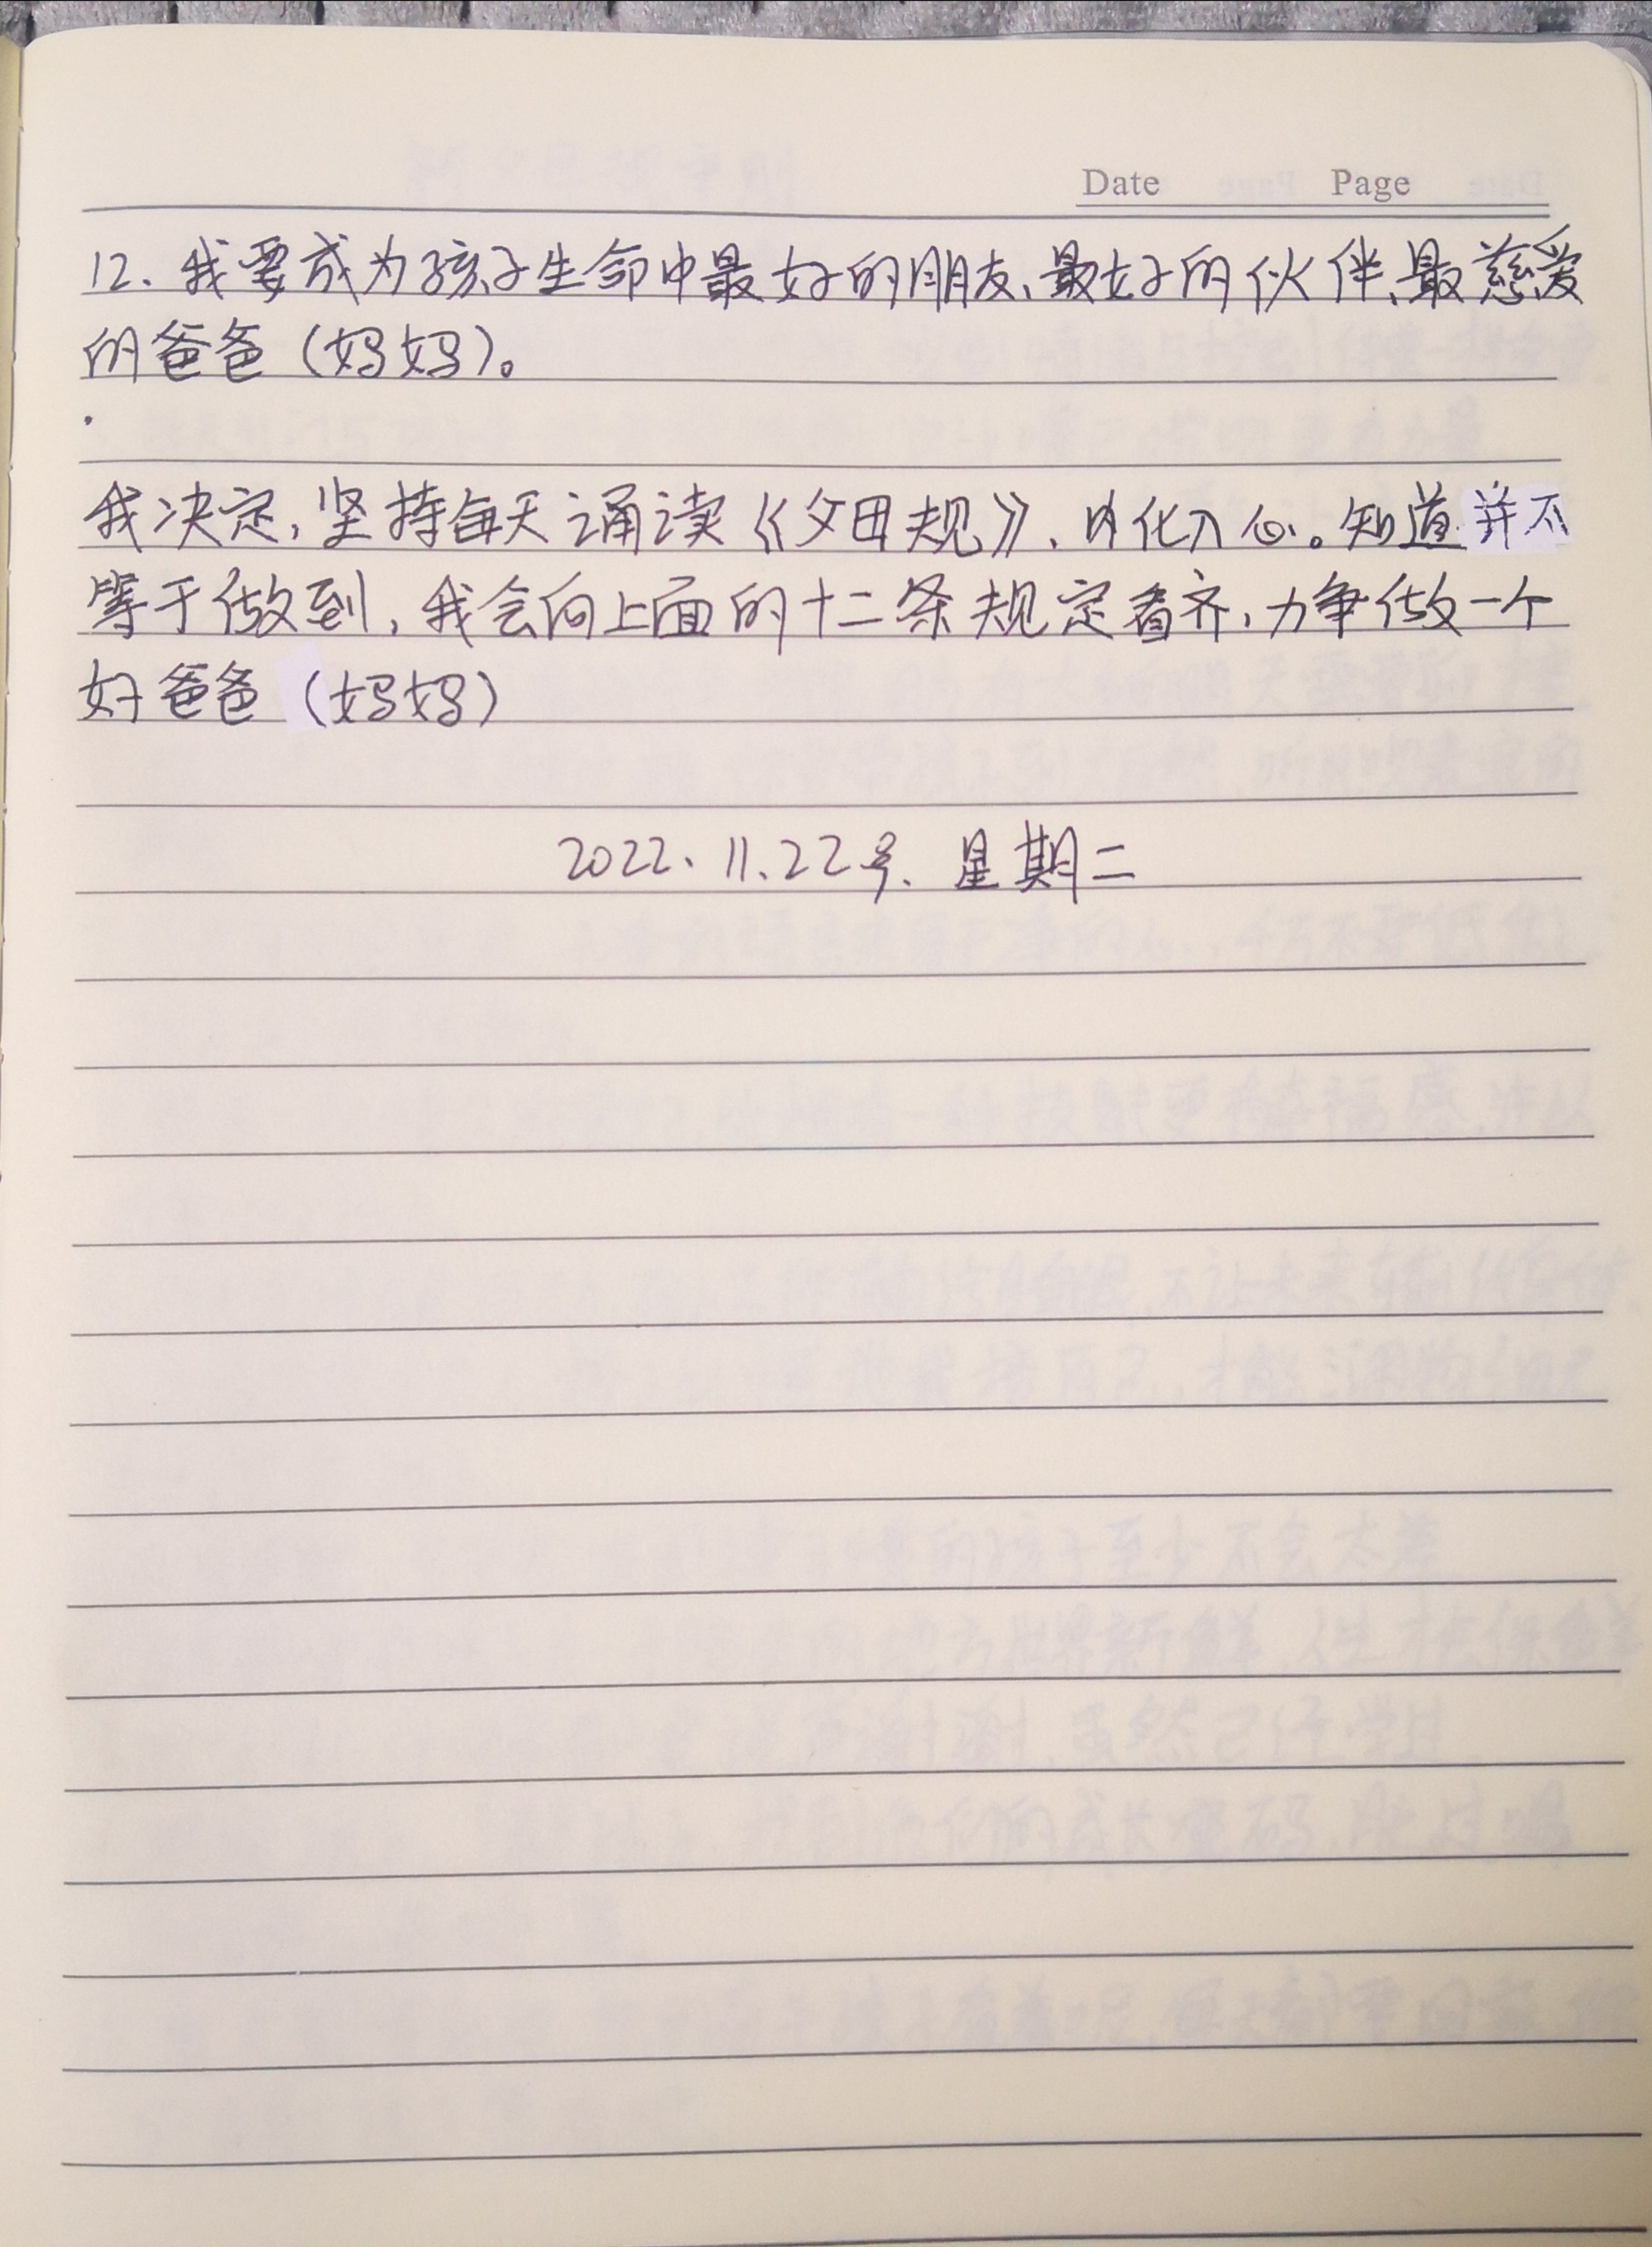 Date Page
12. 我要成为孩子生命中最好的朋友、最好的伙伴、最慈爱
的爸爸(妈妈)。
我决定,坚持每天诵读《父母规》、内化入心。知道并不
等于做到,我会向上面的十二条规定看齐,力争做一个
好爸爸(妈妈)
2022、11、22号、星期二